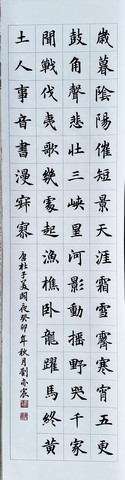 歲暮陰陽催短景天涯霜雪霽寒宵五更
鼓角聲悲壯三峽星河影動搖野哭千家
聞戰伐夷歌幾處起漁樵臥龍躍馬終黃
土人事音書漫寂寥
唐杜子美閣夜癸卯年秋月劉亦宸